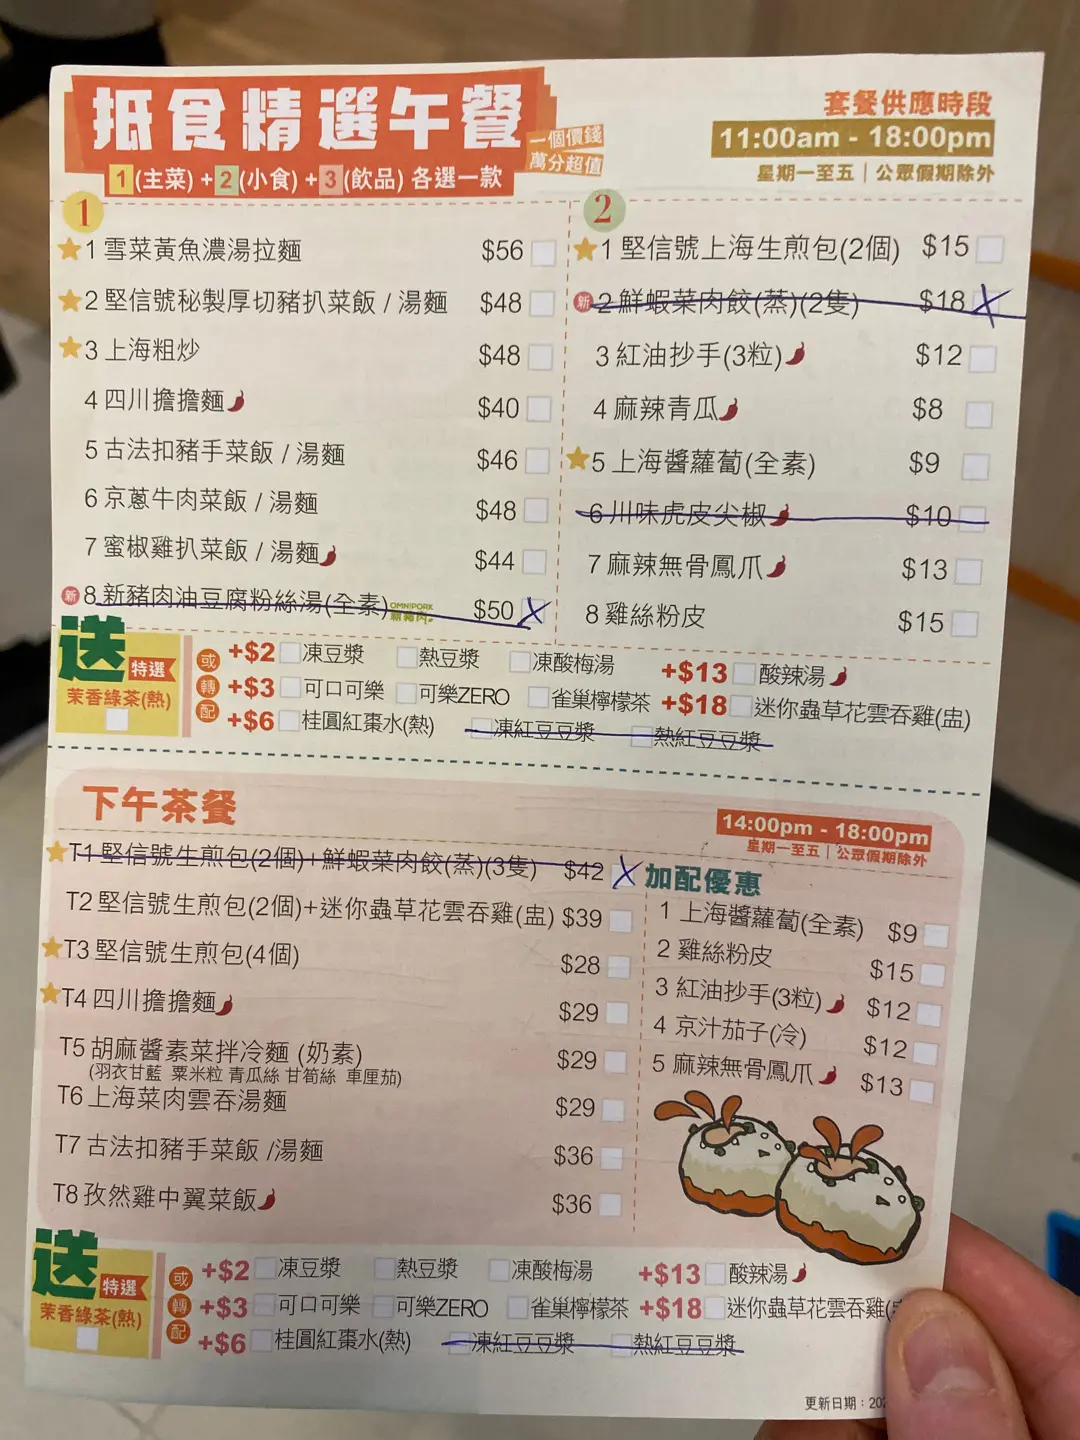 抵食精選午餐
一個價錢
萬分超值
1(主菜)+2(小食)+3(飲品)各選一款
套餐供應時段
11:00am - 18:00pm
星期一至五｜公眾假期除外
1
1 雪菜黃魚濃湯拉麵 $56
2 堅信號秘製厚切豬扒菜飯 / 湯麵 $48
3 上海粗炒 $48
4 四川擔擔麵 $40
5 古法扣豬手菜飯 / 湯麵 $46
6 京蔥牛肉菜飯 / 湯麵 $48
7 蜜椒雞扒菜飯 / 湯麵 $44
新 8 新豬肉油豆腐粉絲湯(全素) OMNIPORK 新豬肉 $50
2
1 堅信號上海生煎包(2個) $15
新 2 鮮蝦菜肉餃(蒸)(2隻) $18
3 紅油抄手(3粒) $12
4 麻辣青瓜 $8
5 上海醬蘿蔔(全素) $9
6 川味虎皮尖椒 $10
7 麻辣無骨鳳爪 $13
8 雞絲粉皮 $15
送 特選
茉香綠茶(熱)
或轉配
+$2 凍豆漿 熱豆漿 凍酸梅湯 +$13 酸辣湯
+$3 可口可樂 可樂ZERO 雀巢檸檬茶 +$18 迷你蟲草花雲吞雞(盅)
+$6 桂圓紅棗水(熱) 凍紅豆豆漿 熱紅豆豆漿
下午茶餐
14:00pm - 18:00pm
星期一至五｜公眾假期除外
T1 堅信號生煎包(2個)+鮮蝦菜肉餃(蒸)(3隻) $42
T2 堅信號生煎包(2個)+迷你蟲草花雲吞雞(盅) $39
T3 堅信號生煎包(4個) $28
T4 四川擔擔麵 $29
T5 胡麻醬素菜拌冷麵 (奶素) $29
(羽衣甘藍 粟米粒 青瓜絲 甘筍絲 車厘茄)
T6 上海菜肉雲吞湯麵 $29
T7 古法扣豬手菜飯 /湯麵 $36
T8 孜然雞中翼菜飯 $36
加配優惠
1 上海醬蘿蔔(全素) $9
2 雞絲粉皮 $15
3 紅油抄手(3粒) $12
4 京汁茄子(冷) $12
5 麻辣無骨鳳爪 $13
送 特選
茉香綠茶(熱)
或轉配
+$2 凍豆漿 熱豆漿 凍酸梅湯 +$13 酸辣湯
+$3 可口可樂 可樂ZERO 雀巢檸檬茶 +$18 迷你蟲草花雲吞雞
+$6 桂圓紅棗水(熱) 凍紅豆豆漿 熱紅豆豆漿
更新日期：202